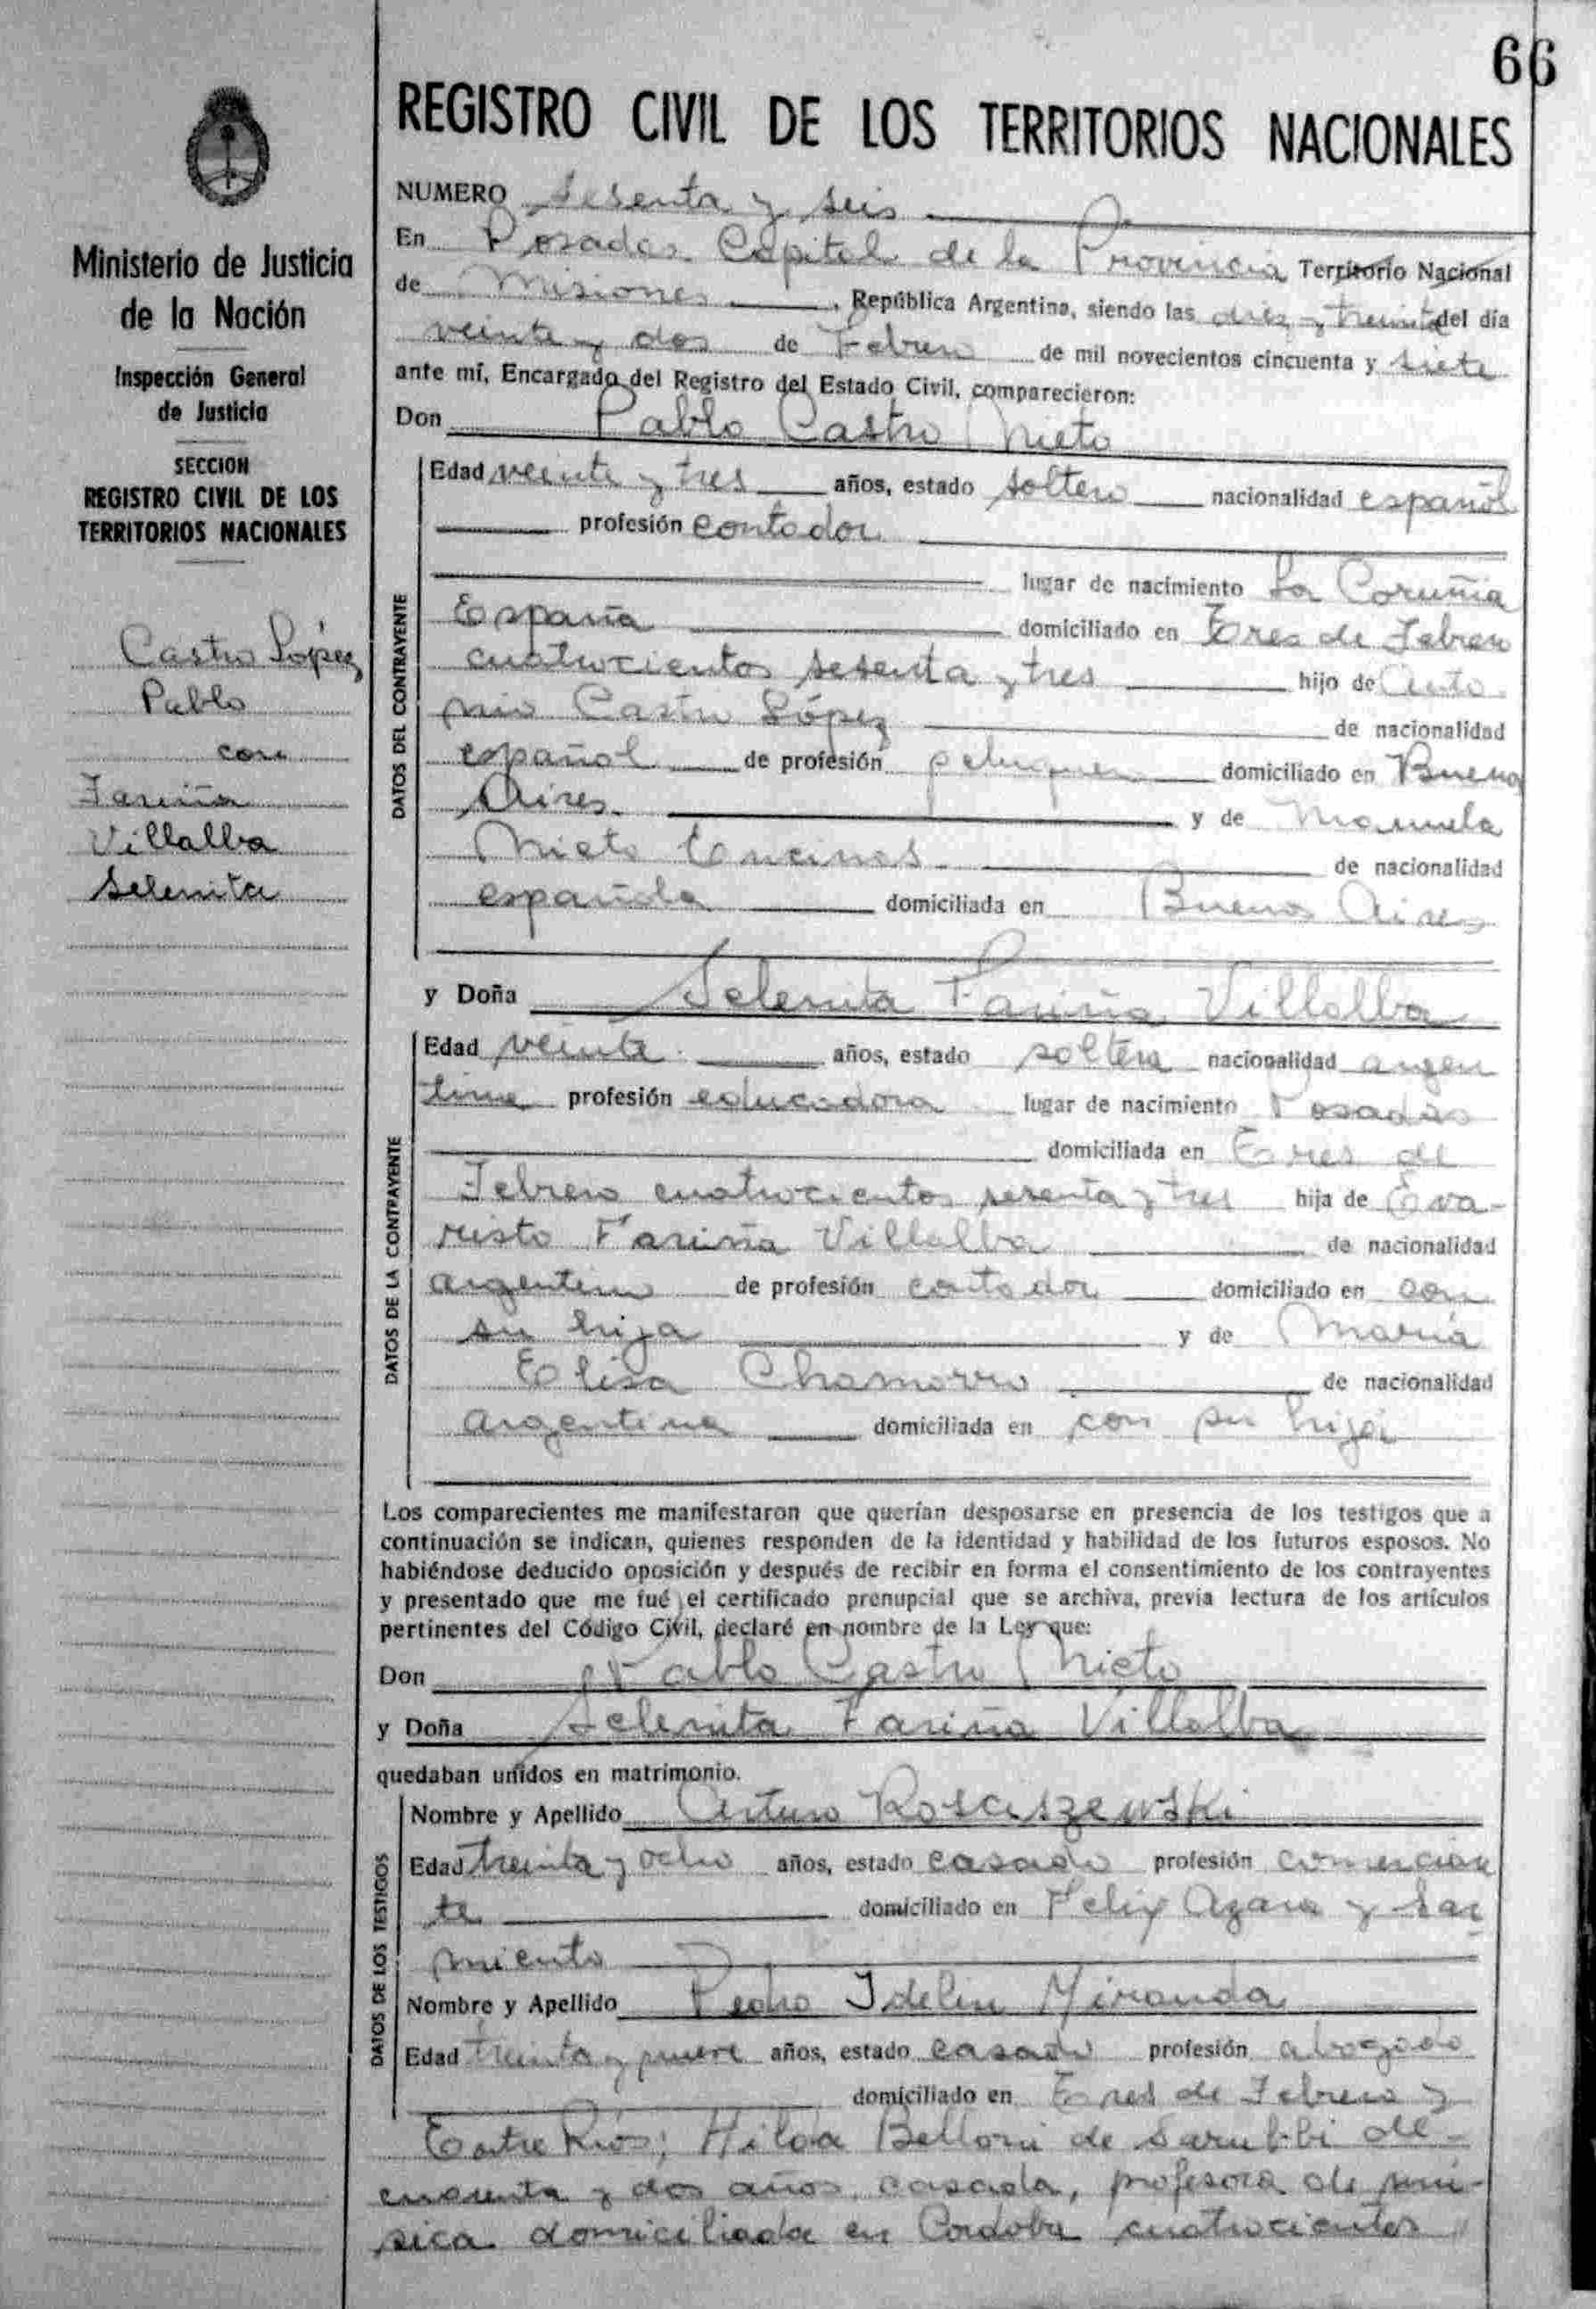 66
REGISTRO CIVIL DE LOS TERRITORIOS NACIONALES
Ministerio de Justicia
de la Nación
Inspección General
de Justicia
SECCION
REGISTRO CIVIL DE LOS
TERRITORIOS NACIONALES
Castro López
Pablo
con
Fariña
Villalba
Selenita
NUMERO Sesenta y seis
En Posadas Capital de la Provincia Territorio Nacional
de Misiones , República Argentina, siendo las diez y treinta del día
veinte y dos de Febrero de mil novecientos cincuenta y siete
ante mí, Encargado del Registro del Estado Civil, comparecieron:
Don Pablo Castro Nieto
DATOS DEL CONTRAYENTE
Edad veinte y tres años, estado soltero nacionalidad español
profesión contador
lugar de nacimiento La Coruña
España domiciliado en Tres de Febrero
cuatrocientos sesenta y tres hijo de Anto
nio Castro López de nacionalidad
español de profesión peluquero domiciliado en Buenos
Aires y de Manuela
Nieto Encinas de nacionalidad
española domiciliada en Buenos Aires
y Doña Selenita Fariña Villalba
DATOS DE LA CONTRAYENTE
Edad veinte años, estado soltera nacionalidad argen
tina profesión educadora lugar de nacimiento Posadas
domiciliada en Tres de
Febrero cuatrocientos sesenta y tres hija de Eva-
risto Fariña Villalba de nacionalidad
argentino de profesión contador domiciliado en con
su hija y de María
Elisa Chamorro de nacionalidad
argentina domiciliada en con su hija
Los comparecientes me manifestaron que querían desposarse en presencia de los testigos que a
continuación se indican, quienes responden de la identidad y habilidad de los futuros esposos. No
habiéndose deducido oposición y después de recibir en forma el consentimiento de los contrayentes
y presentado que me fué el certificado prenupcial que se archiva, previa lectura de los artículos
pertinentes del Código Civil, declaré en nombre de la Ley que:
Don Pablo Castro Nieto
y Doña Selenita Fariña Villalba
quedaban unidos en matrimonio.
DATOS DE LOS TESTIGOS
Nombre y Apellido Arturo Rosciszewski
Edad treinta y ocho años, estado casado profesión comercian
te domiciliado en Felix Azara y Sar
miento
Nombre y Apellido Pedro Idelin Miranda
Edad treinta y nueve años, estado casado profesión abogado
domiciliado en Tres de Febrero y
Entre Ríos; Hilda Belloni de Sarubbi de
cincuenta y dos años, casada, profesora de mú-
sica domiciliada en Córdoba cuatrocientos